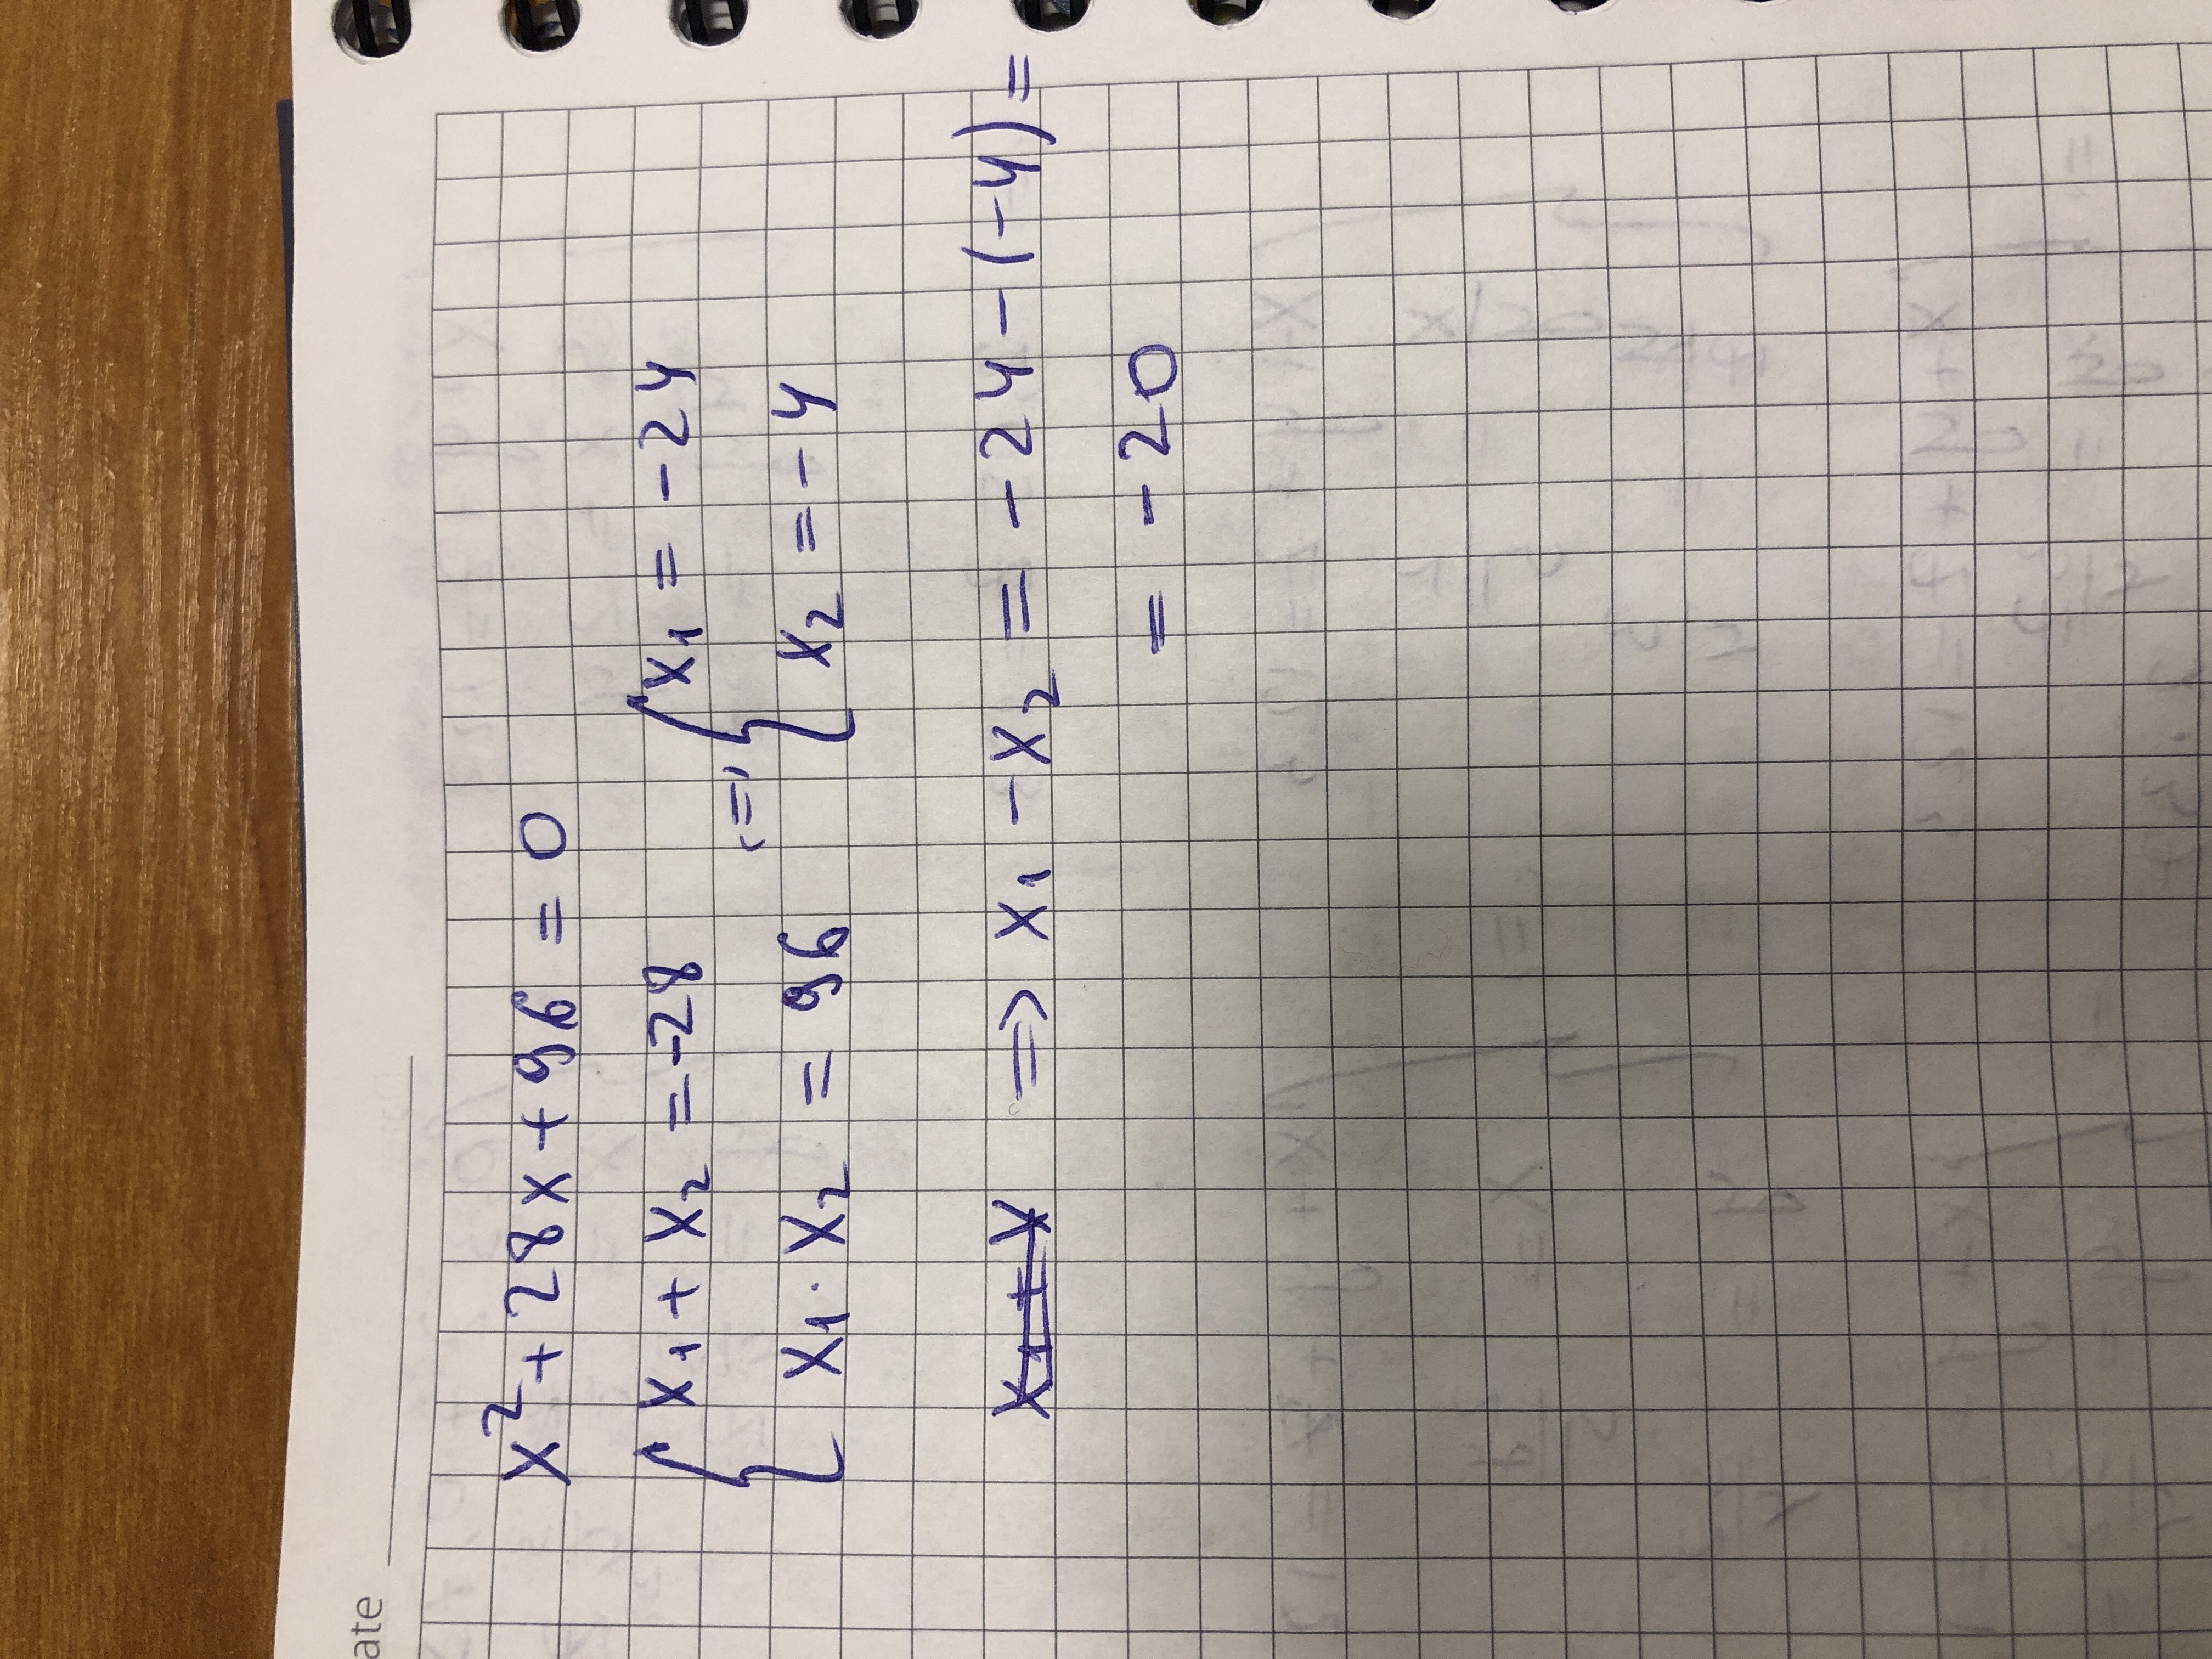 ate
x² + 28x + 96 = 0
{ x₁ + x₂ = -28
{ x₁ · x₂ = 96
(=)
{ x₁ = -24
{ x₂ = -4
=> x₁ - x₂ = -24 - (-4) =
= -20